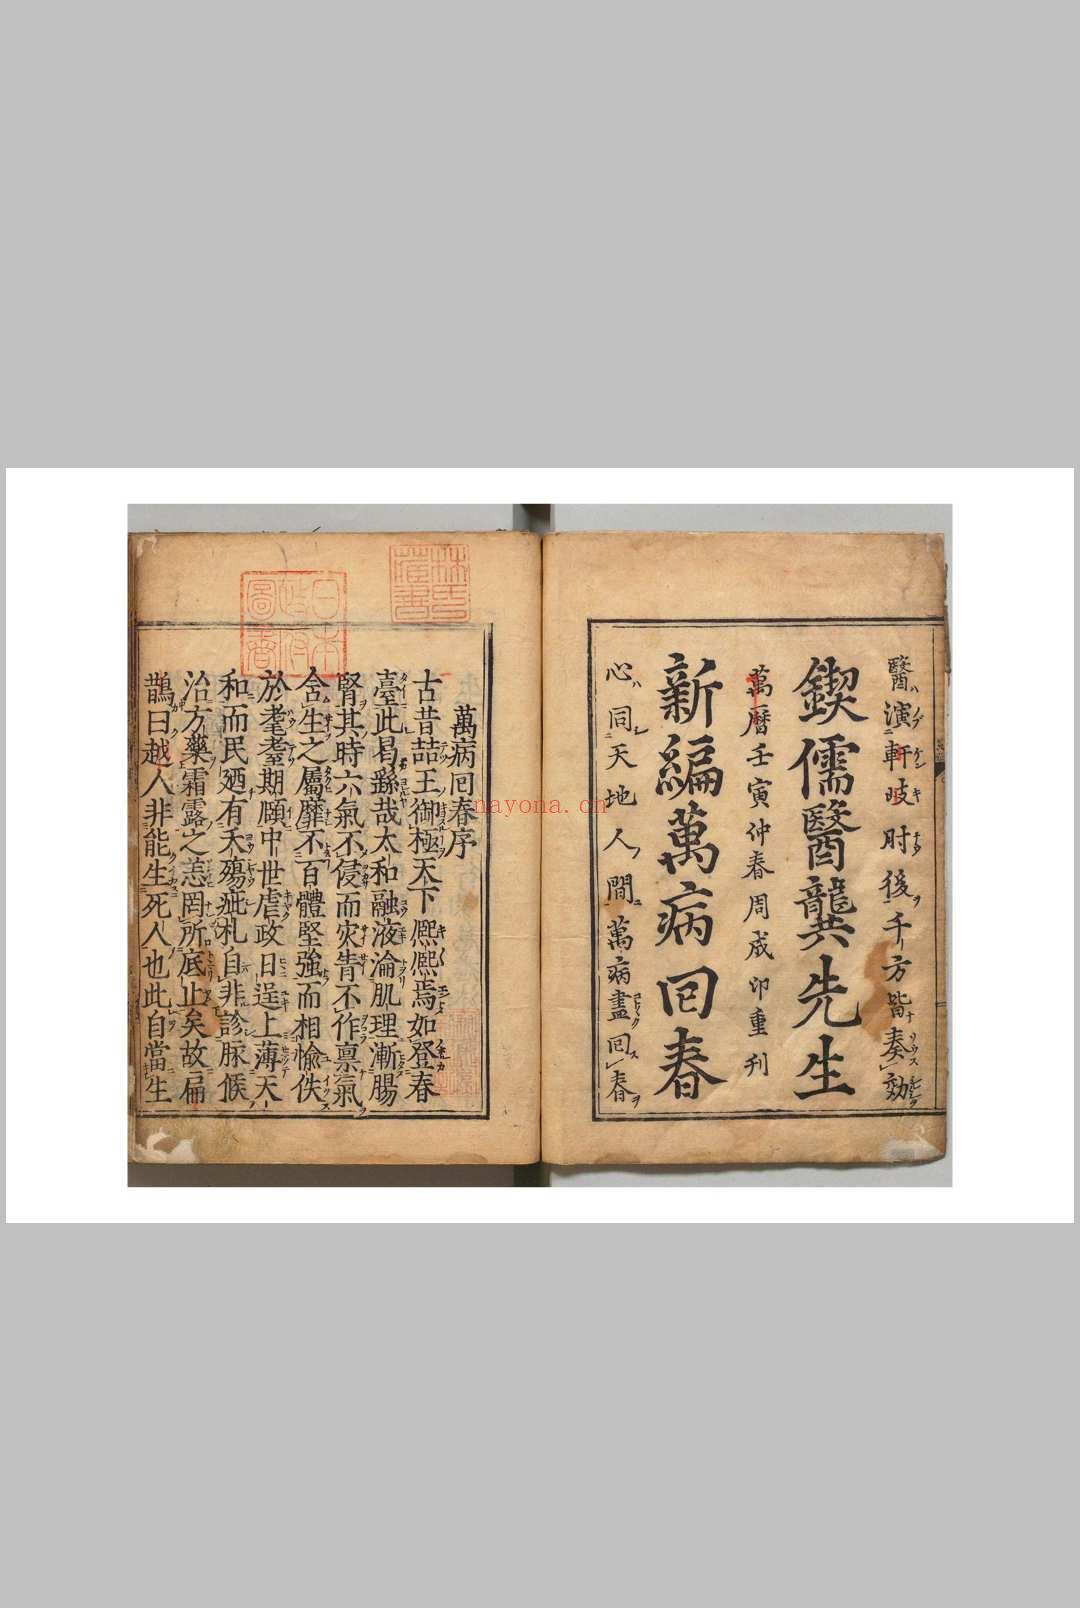 醫演軒岐肘後千方皆奏効
鍥儒醫龔先生
萬曆壬寅仲春周成印重刊
新編萬病回春
心同天地人間萬病盡回春
萬病回春序
古昔喆王御極天下熈熈焉如登春
臺此曷繇哉太和融液淪肌理漸腸
腎其時六氣不侵而灾眚不作禀氣
含生之屬靡不百體堅強而相愉佚
於耄耋期頤中世虐政日逞上薄天
和而民廼有夭殤疵札自非診脉候
治方藥霜露之恙罔所底止矣故扁
鵲曰越人非能生死人也此自當生
日本政府圖書
nayona.cn